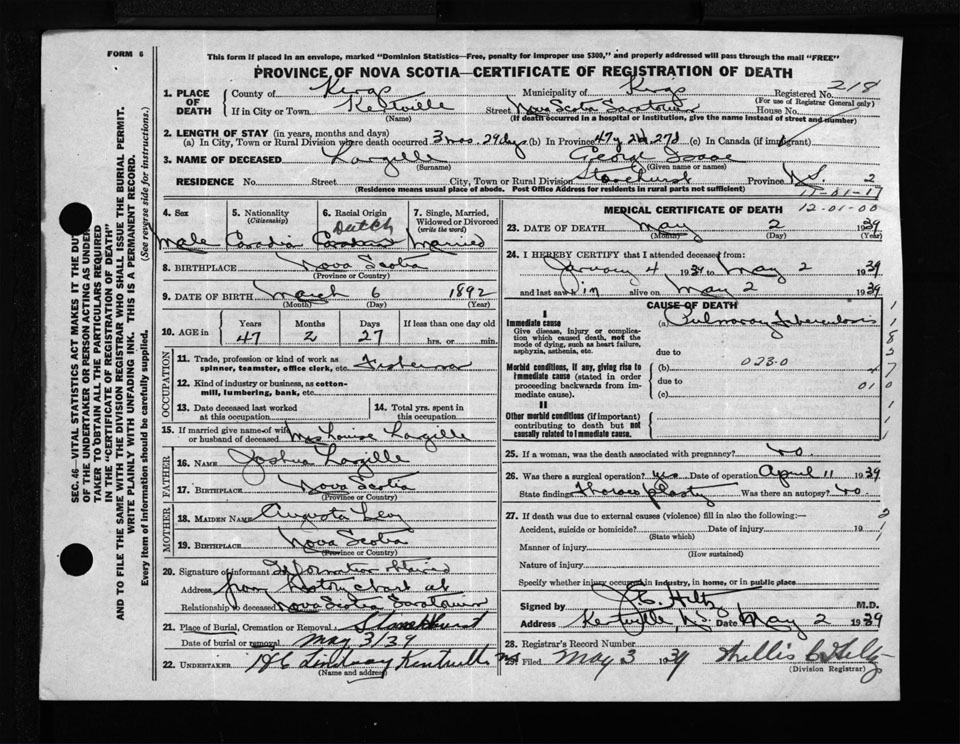 FORM 6
This form if placed in an envelope, marked "Dominion Statistics—Free, penalty for improper use $300," and properly addressed will pass through the mail "FREE"
PROVINCE OF NOVA SCOTIA—CERTIFICATE OF REGISTRATION OF DEATH
1. PLACE OF DEATH
County of Kings Municipality of Kings Registered No. 218
(For use of Registrar General only)
If in City or Town Kentville Street Nova Scotia Sanatorium House No.
(Name) (If death occurred in a hospital or institution, give the name instead of street and number)
2. LENGTH OF STAY (in years, months and days)
(a) In City, Town or Rural Division where death occurred 3 mos. 29 days (b) In Province 47y 2m 27d (c) In Canada (if immigrant)
3. NAME OF DECEASED Langille George Isaac
(Surname) (Given name or names)
RESIDENCE No. Street City, Town or Rural Division Province N.S. 2
(Residence means usual place of abode. Post Office Address for residents in rural parts not sufficient)
11-01-17
12-01-00
4. Sex Male
5. Nationality (Citizenship) Canadian
6. Racial Origin Dutch Canadian
7. Single, Married, Widowed or Divorced (write the word) Married
8. BIRTHPLACE Nova Scotia
(Province or Country)
9. DATE OF BIRTH March 6 1892
(Month) (Day) (Year)
10. AGE in
Years Months Days If less than one day
47 2 27 hrs. or min.
OCCUPATION
11. Trade, profession or kind of work as spinner, teamster, office clerk, etc. Fisherman
12. Kind of industry or business, as cotton-mill, lumbering, bank, etc.
13. Date deceased last worked at this occupation
14. Total yrs. spent in this occupation
15. If married give name of wife or husband of deceased Mrs Louise Langille
FATHER
16. NAME Joshua Langille
17. BIRTHPLACE Nova Scotia
(Province or Country)
MOTHER
18. MAIDEN NAME Augusta Levy
19. BIRTHPLACE Nova Scotia
(Province or Country)
20. Signature of informant Information obtained
Address from history chart at
Relationship to deceased Nova Scotia Sanatorium
21. Place of Burial, Cremation or Removal
Date of burial or removal May 3/39
22. UNDERTAKER Lindsay Kentville NS
(Name and address)
MEDICAL CERTIFICATE OF DEATH
23. DATE OF DEATH May 2 1939
(Month) (Day) (Year)
24. I HEREBY CERTIFY that I attended deceased from:
January 4 1939 to May 2 1939
and last saw him alive on May 2 1939
CAUSE OF DEATH
I
Immediate cause (a) Pulmonary Tuberculosis
Give disease, injury or complication which caused death, not the mode of dying, such as heart failure, asphyxia, asthenia, etc.
due to
Morbid conditions, if any, giving rise to immediate cause (stated in order proceeding backwards from immediate cause).
(b) 0230
due to
(c)
010
II
Other morbid conditions (if important) contributing to death but not causally related to immediate cause.
25. If a woman, was the death associated with pregnancy? no.
26. Was there a surgical operation? yes Date of operation April 11 1939
State findings Thoracoplasty Was there an autopsy? no.
27. If death was due to external causes (violence) fill in also the following:—
Accident, suicide or homicide? Date of injury 19
(State which)
Manner of injury
(How sustained)
Nature of injury
Specify whether injury occurred in industry, in home, or in public place
Signed by Hiltz M.D.
Address Kentville, N.S. Date May 2 1939
28. Registrar's Record Number
29. Filed May 3 1939
(Division Registrar)
SEC. 46—VITAL STATISTICS ACT MAKES IT THE DUTY
OF THE UNDERTAKER OR PERSON ACTING AS UNDER-
TAKER TO OBTAIN ALL THE PARTICULARS REQUIRED
IN THE "CERTIFICATE OF REGISTRATION OF DEATH"
AND TO FILE THE SAME WITH THE DIVISION REGISTRAR WHO SHALL ISSUE THE BURIAL PERMIT.
WRITE PLAINLY WITH UNFADING INK. THIS IS A PERMANENT RECORD.
Every item of information should be carefully supplied. (See reverse side for instructions.)